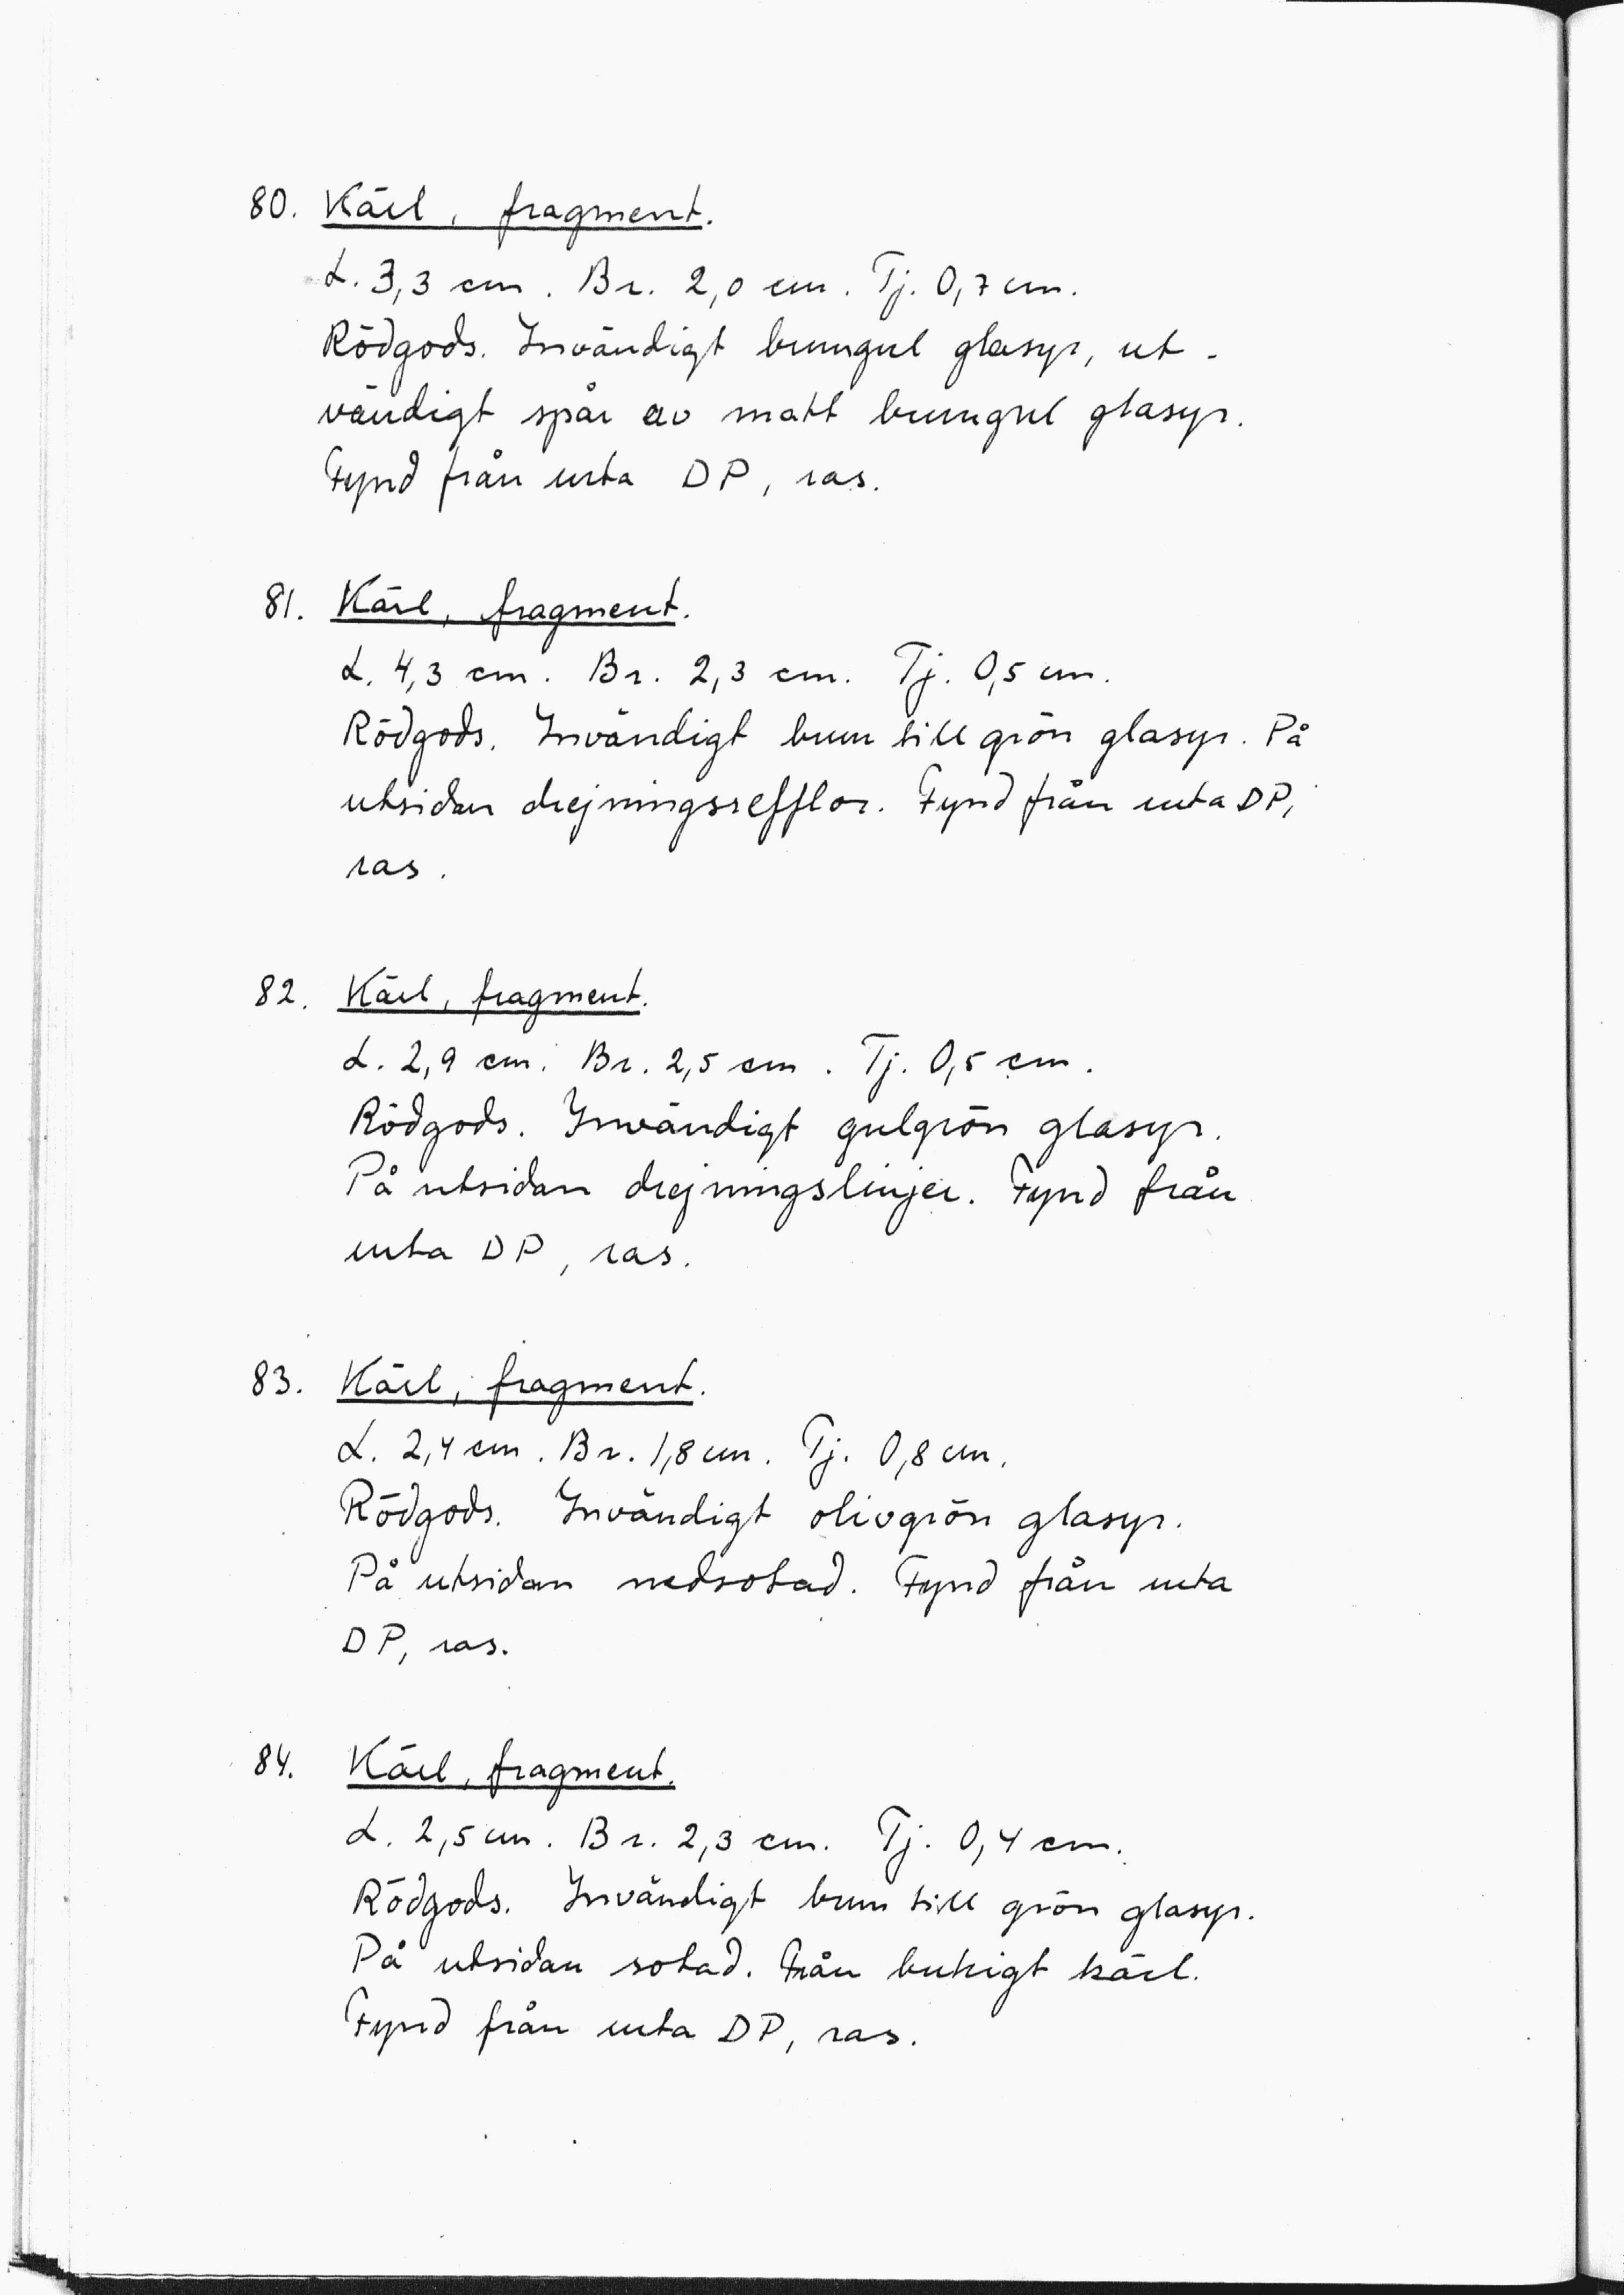 80. Kärl, fragment.
L. 3,3 cm. Br. 2,0 cm. Tj. 0,7 cm.
Rödgods. Invändigt brungul glasyr, ut-
vändigt spår av matt brungul glasyr.
Fynd från ruta DP, ras.
81. Kärl, fragment.
L. 4,3 cm. Br. 2,3 cm. Tj. 0,5 cm.
Rödgods. Invändigt brun till grön glasyr. På
utsidan drejningsrefflor. Fynd från ruta DP,
ras.
82. Kärl, fragment.
L. 2,9 cm. Br. 2,5 cm. Tj. 0,5 cm.
Rödgods. Invändigt gulgrön glasyr.
På utsidan drejningslinjer. Fynd från
ruta DP, ras.
83. Kärl, fragment.
L. 2,4 cm. Br. 1,8 cm. Tj. 0,8 cm.
Rödgods. Invändigt olivgrön glasyr.
På utsidan nedsotad. Fynd från ruta
DP, ras.
84. Kärl, fragment.
L. 2,5 cm. Br. 2,3 cm. Tj. 0,4 cm.
Rödgods. Invändigt brun till grön glasyr.
På utsidan sotad. Från bukigt kärl.
Fynd från ruta DP, ras.